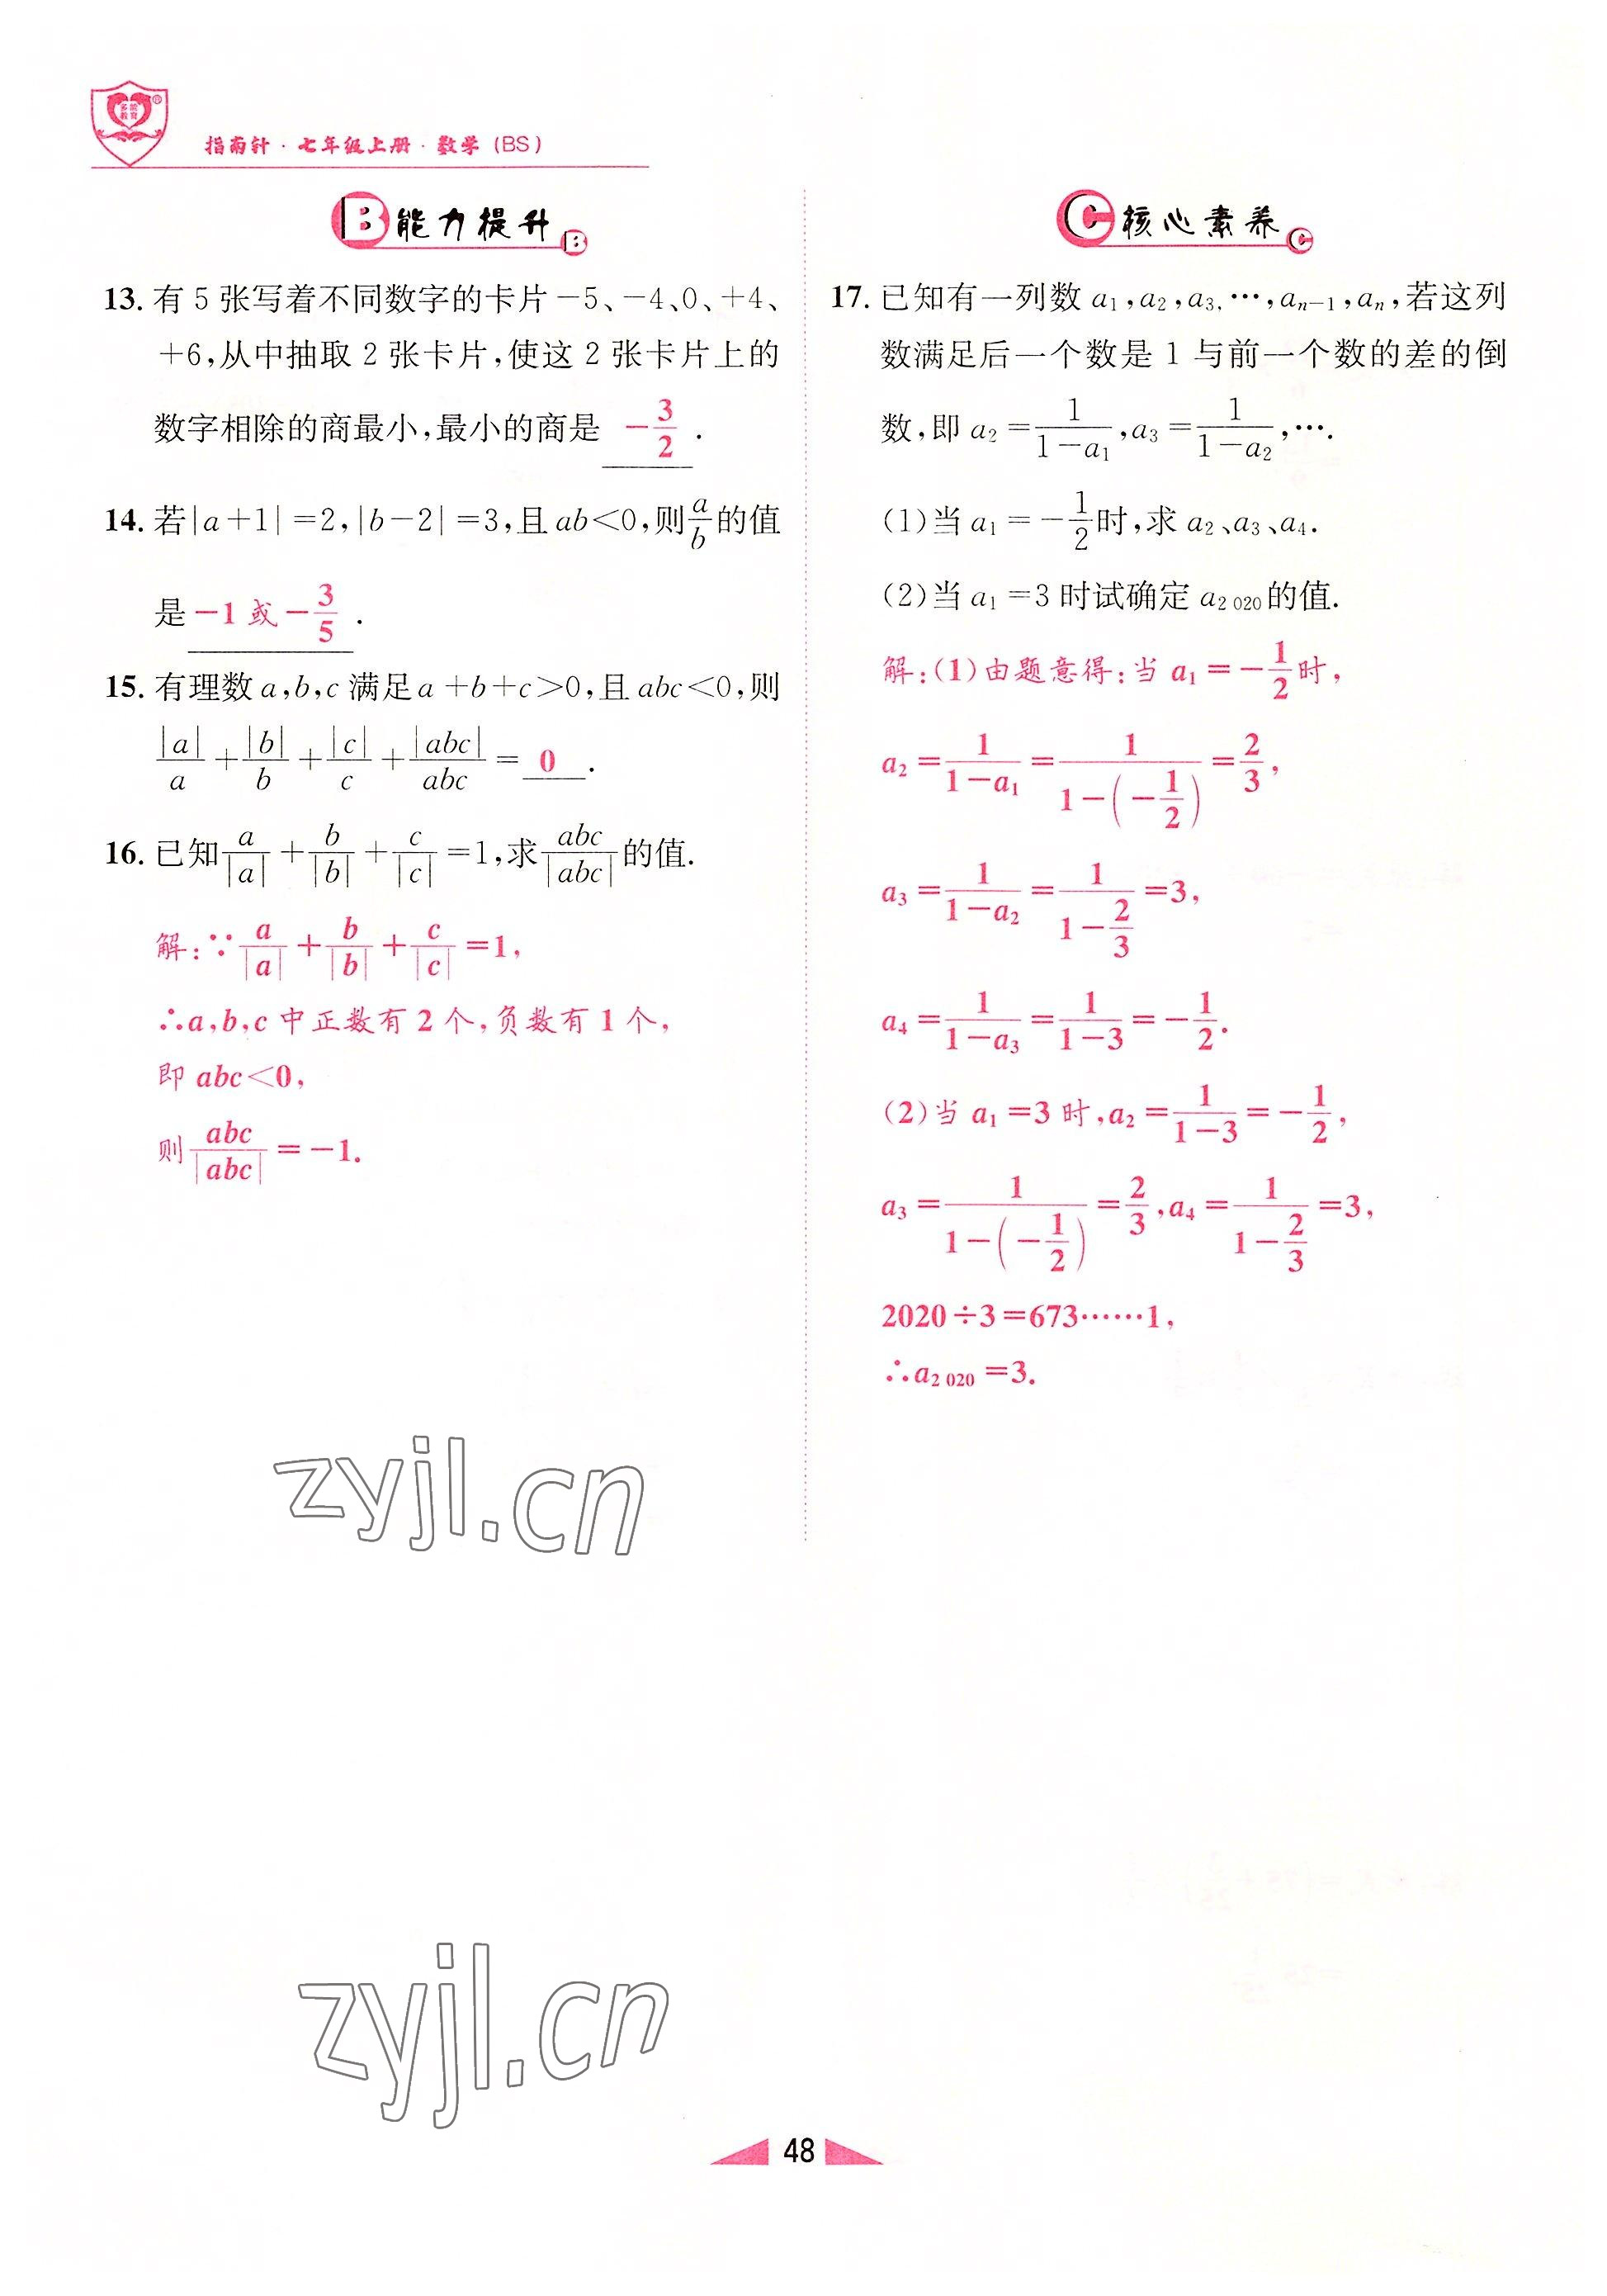 多能
教育
指南针·七年级上册·数学(BS)
B 能力提升 B
13. 有 5 张写着不同数字的卡片-5、-4、0、+4、
+6,从中抽取 2 张卡片,使这 2 张卡片上的
数字相除的商最小,最小的商是 -3/2 .
14. 若|a+1|=2,|b-2|=3,且 ab<0,则a/b的值
是 -1 或-3/5 .
15. 有理数 a,b,c 满足a+b+c>0,且 abc<0,则
|a|/a+|b|/b+|c|/c+|abc|/abc= 0 .
16. 已知a/|a|+b/|b|+c/|c|=1,求abc/|abc|的值.
解:∵a/|a|+b/|b|+c/|c|=1,
∴a,b,c 中正数有 2 个,负数有 1 个,
即 abc<0,
则abc/|abc|=-1.
C 核心素养 C
17. 已知有一列数 a₁,a₂,a₃,…,aₙ₋₁,aₙ,若这列
数满足后一个数是 1 与前一个数的差的倒
数,即 a₂=1/(1-a₁),a₃=1/(1-a₂),….
(1)当 a₁=-1/2时,求 a₂、a₃、a₄.
(2)当 a₁=3 时试确定 a₂ ₀₂₀的值.
解:(1)由题意得:当 a₁=-1/2时,
a₂=1/(1-a₁)=1/(1-(-1/2))=2/3,
a₃=1/(1-a₂)=1/(1-2/3)=3,
a₄=1/(1-a₃)=1/(1-3)=-1/2.
(2)当 a₁=3 时,a₂=1/(1-3)=-1/2,
a₃=1/(1-(-1/2))=2/3,a₄=1/(1-2/3)=3,
2020÷3=673……1,
∴a₂ ₀₂₀=3.
zyjl.cn
zyjl.cn
48